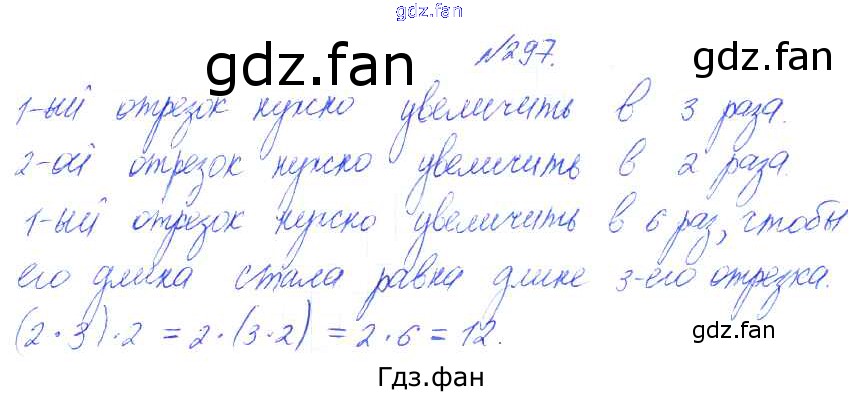 gdz.fan
№297.
gdz.fan gdz.fan
1-ый отрезок нужно увеличить в 3 раза.
2-ой отрезок нужно увеличить в 2 раза.
1-ый отрезок нужно увеличить в 6 раз, чтобы
его длина стала равна длине 3-его отрезка.
(2·3)·2 = 2·(3·2) = 2·6 = 12.
gdz.fan
Гдз.фан